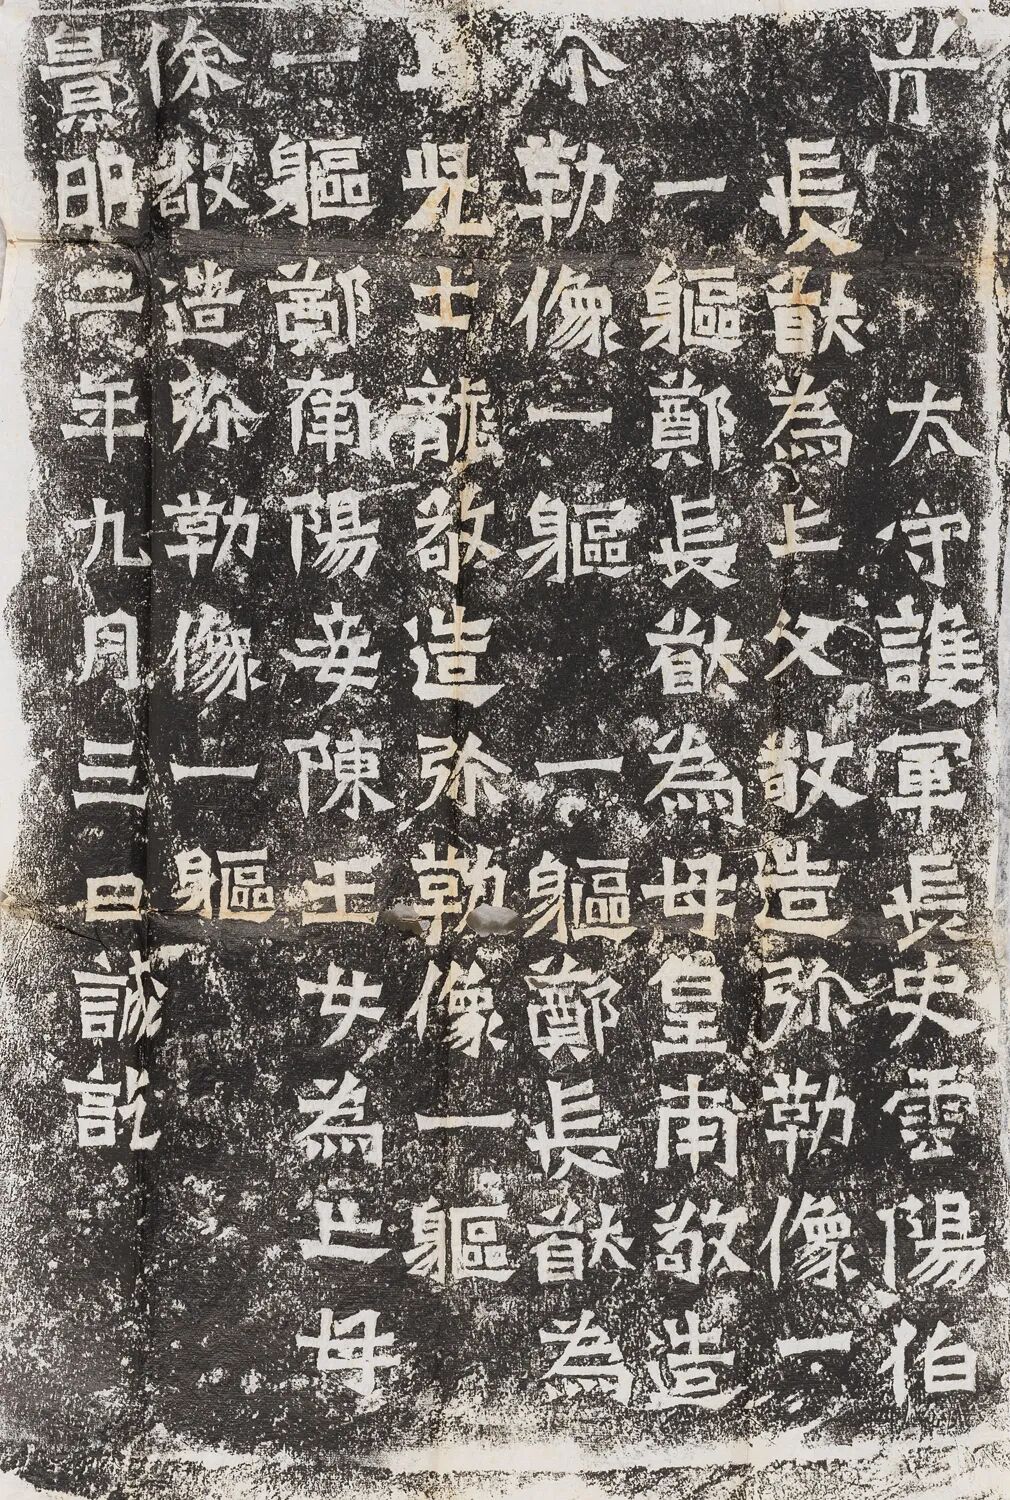 太守護軍長史雲陽伯
長猷為亡父敬造弥勒像一
一軀鄭長猷為母皇甫敬造
勒像一軀一軀鄭長猷為
亡兒士龍敬造弥勒像一軀
一軀鄭南陽妾陳王女為亡母
徐敬造弥勒像一軀
景明二年九月三日誡訖